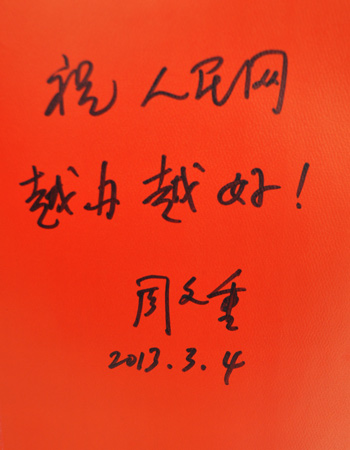 祝人民网
越办越好！
周文重
2013.3.4